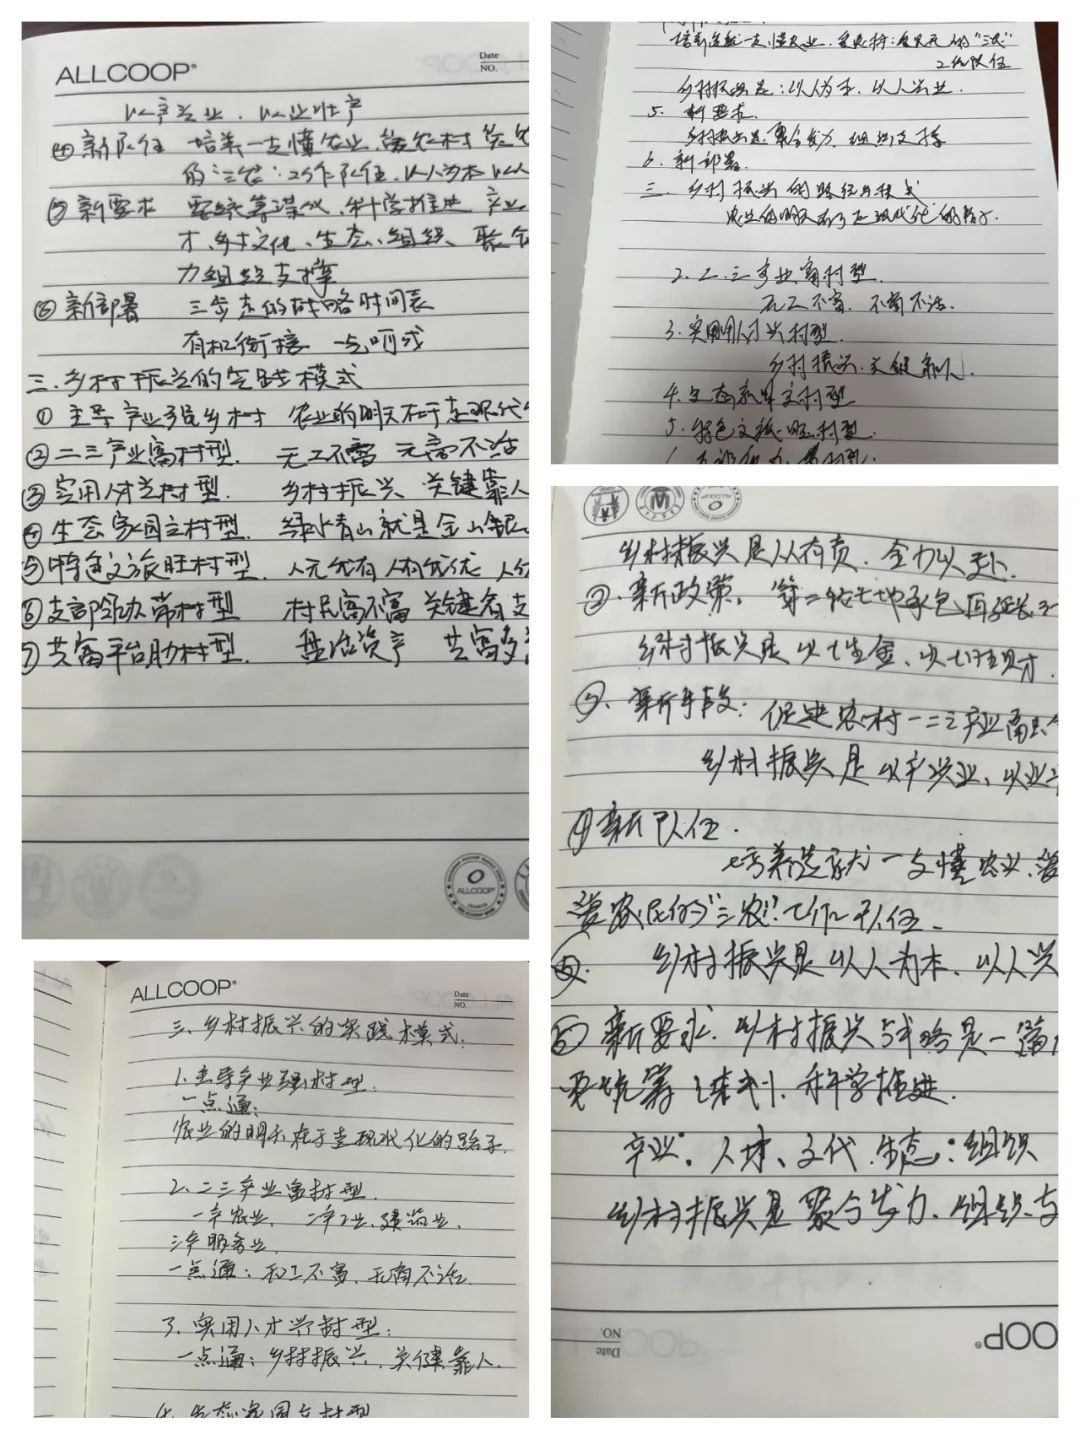 ALLCOOP®
Date
NO.
以产兴业、以业壮产
④新队伍 培养一支懂农业、爱农村 爱农
的三农工作队伍,以人为本 以人
⑤新要求 要统筹谋划、科学推进 产业、
才、乡文化、生态、组织、聚合
力组织支撑
⑥新部署 三步走的战略时间表
有机衔接 一点呵成
三、乡村振兴的实践模式
①主导产业强乡村 农业的明天在于走现代
②二三产业富村型. 无工不富 无商不活
③实用人才兴村型. 乡村振兴 关键靠人
④生态家园立村型. 绿水青山就是金山银
⑤特色文旅旺村型. 人无我有 人有我优 人
⑥支部领办带村型 村民富不富 关键看支
⑦共富平台助村型. 盘活资产 共富多
ALLCOOP
培养造就一支懂农业、爱农村、爱农民的"三农"
工作队伍
乡村振兴是:以人为本,以人兴业.
5. 新要求
乡村振兴是聚合发力,组织支撑
6. 新部署.
三、乡村振兴的路径与模式
农业的明天在于走现代化的路子.
2. 二、三产业富村型.
无工不富,不商不活.
3. 实用人才兴村型.
乡村振兴.关键靠人.
4. 生态家园立村型
5. 特色文旅旺村型.
ALLCOOP®
Date
NO.
三、乡村振兴的实践模式:
1. 主导产业强村型.
一点通:
农业的明天在于走现代化的路子.
2. 二三产业富村型.
一产农业, 二产工业、建筑业,
三产服务业.
一点通:无工不富、无商不活.
3. 实用人才兴村型:
一点通:乡村振兴,关键靠人.
4. 生态家园立村型
乡村振兴是人人有责.全力以赴.
②. 新政策. 第二轮土地承包再延长三
乡村振兴是以土生金、以土生财.
③. 新手段:促进农村一二三产业融合
乡村振兴是以产兴业、以业
④新队伍.
培养造就一支懂农业、爱
爱农民的"三农"工作队伍.
乡村振兴是以人为本、以人兴
⑤ 新要求.乡村振兴战略是一篇
要统筹谋划、科学推进.
产业、人才、文化、生态、组织
乡村振兴是聚合发力、组织支
Date
NO.
OOP®